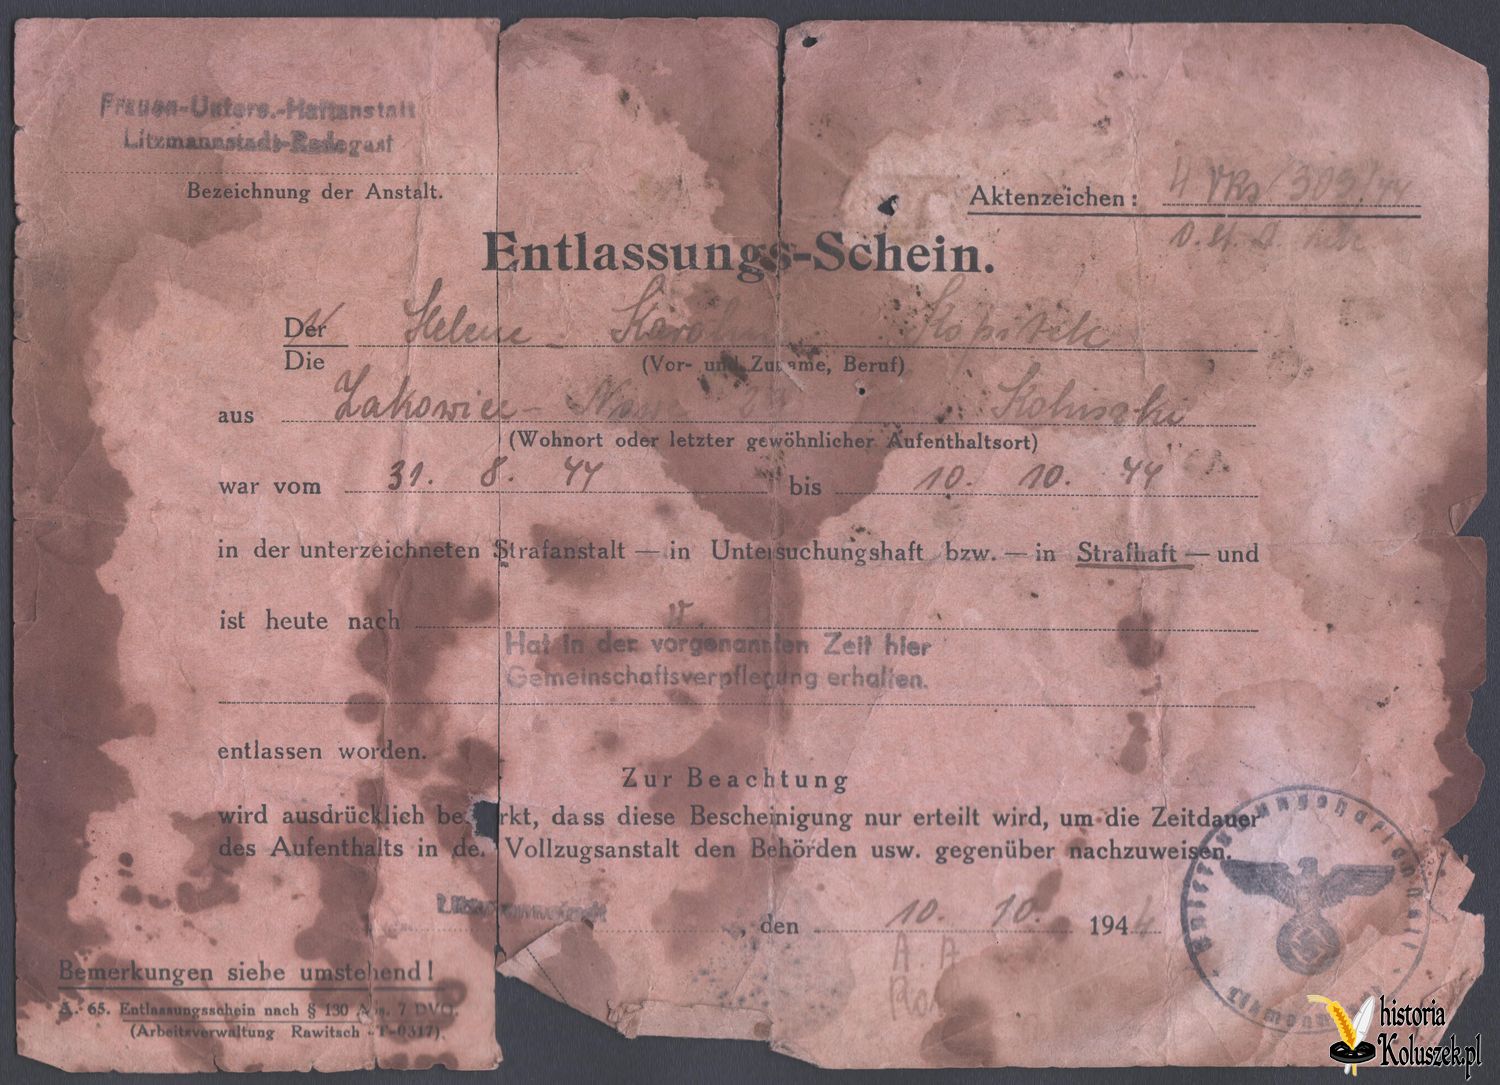 Frauen-Unters.-Haftanstalt
Litzmannstadt-Radegast
Bezeichnung der Anstalt.
Aktenzeichen: 4 VRs/303/44
Entlassungs-Schein.
Der Helene Karolin Kopitek
Die (Vor- und Zuname, Beruf)
aus Zakowice- Koluszki
(Wohnort oder letzter gewöhnlicher Aufenthaltsort)
war vom 31. 8. 44 bis 10. 10. 44
in der unterzeichneten Strafanstalt — in Untersuchungshaft bzw. — in Strafhaft — und
ist heute nach
Hat in der vorgenannten Zeit hier
Gemeinschaftsverpflegung erhalten.
entlassen worden.
Zur Beachtung
wird ausdrücklich be rkt, dass diese Bescheinigung nur erteilt wird, um die Zeitdauer
des Aufenthalts in de. Vollzugsanstalt den Behörden usw. gegenüber nachzuweisen.
Litzmannstadt den 10. 10. 1944
A. A
Bemerkungen siehe umstehend!
A. 65. Entlassungsschein nach § 130 Abs. 7 DVO.
(Arbeitsverwaltung Rawitsch T-0317)
historia
Koluszek.pl